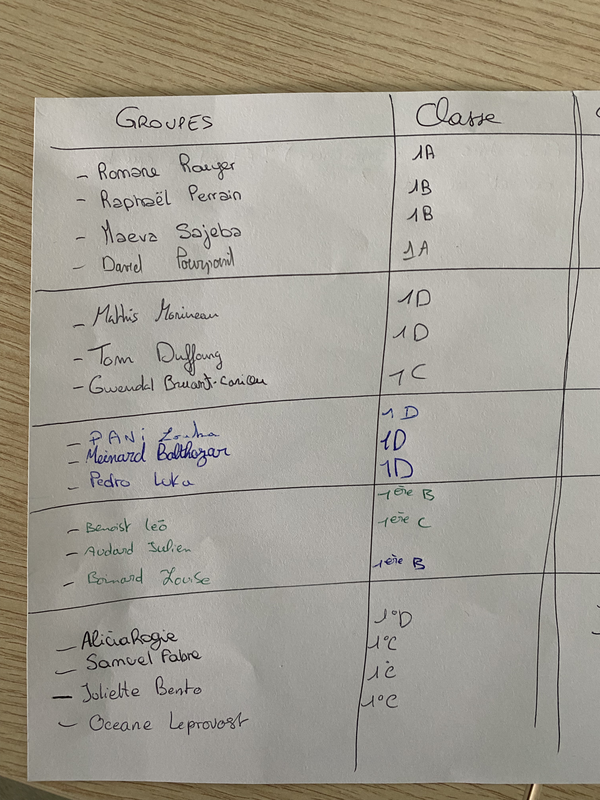 GROUPES Classe
- Romane Rouyer 1A
- Raphaël Perrain 1B
- Maeva Sajeba 1B
- David Pourpoint 1A
- Mathis Morineau 1D
- Tom Duffourg 1D
- Gwendal Bruant-Cariou 1C
- PANI Louha 1D
- Meinard Balthazar 1D
- Pedro Luka 1D
- Benoist Léo 1ère B
- Audard Julien 1ère C
- Boinard Louise 1ère B
- Alicia Rogie 1°D
- Samuel Fabre 1°C
- Juliette Bento 1°C
- Oceane Leprovost 1°C